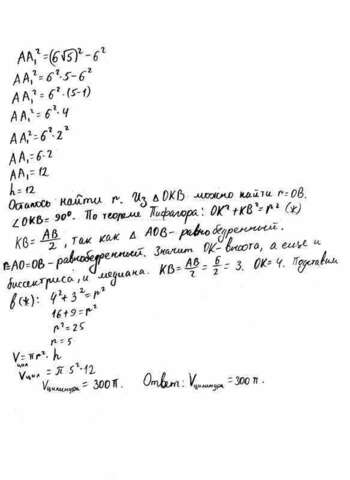 AA₁² = (6√5)² - 6²
AA₁² = 6²·5 - 6²
AA₁² = 6²·(5-1)
AA₁² = 6²·4
AA₁² = 6²·2²
AA₁ = 6·2
AA₁ = 12
h = 12
Осталось найти r. Из △OKB можно найти r=OB.
∠OKB = 90°. По теореме Пифагора: OK² + KB² = r² (*)
KB = AB/2, так как △ AOB - равнобедренный.
r=AO=OB - равнобедренный. Значит OK - высота, а еще и
биссектриса, и медиана. KB = AB/2 = 6/2 = 3. OK = 4. Подставим
в (*): 4² + 3² = r²
16 + 9 = r²
r² = 25
r = 5
V цил = πr²·h
V цил = π 5²·12
V цилиндра = 300π. Ответ: V цилиндра = 300π.